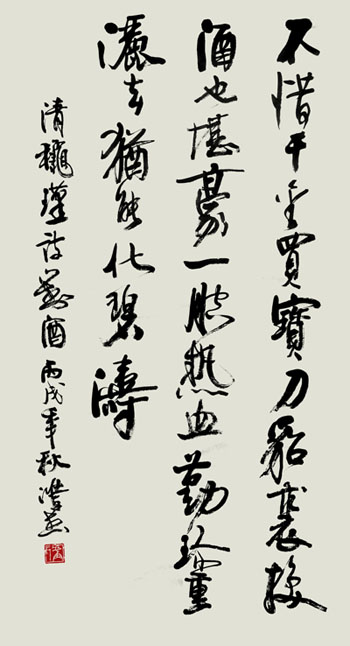 不惜千金買寶刀貂裘換
酒也堪豪一腔熱血勤珍重
灑去猶能化碧濤
清龝瑾詩對酒丙戌年秋